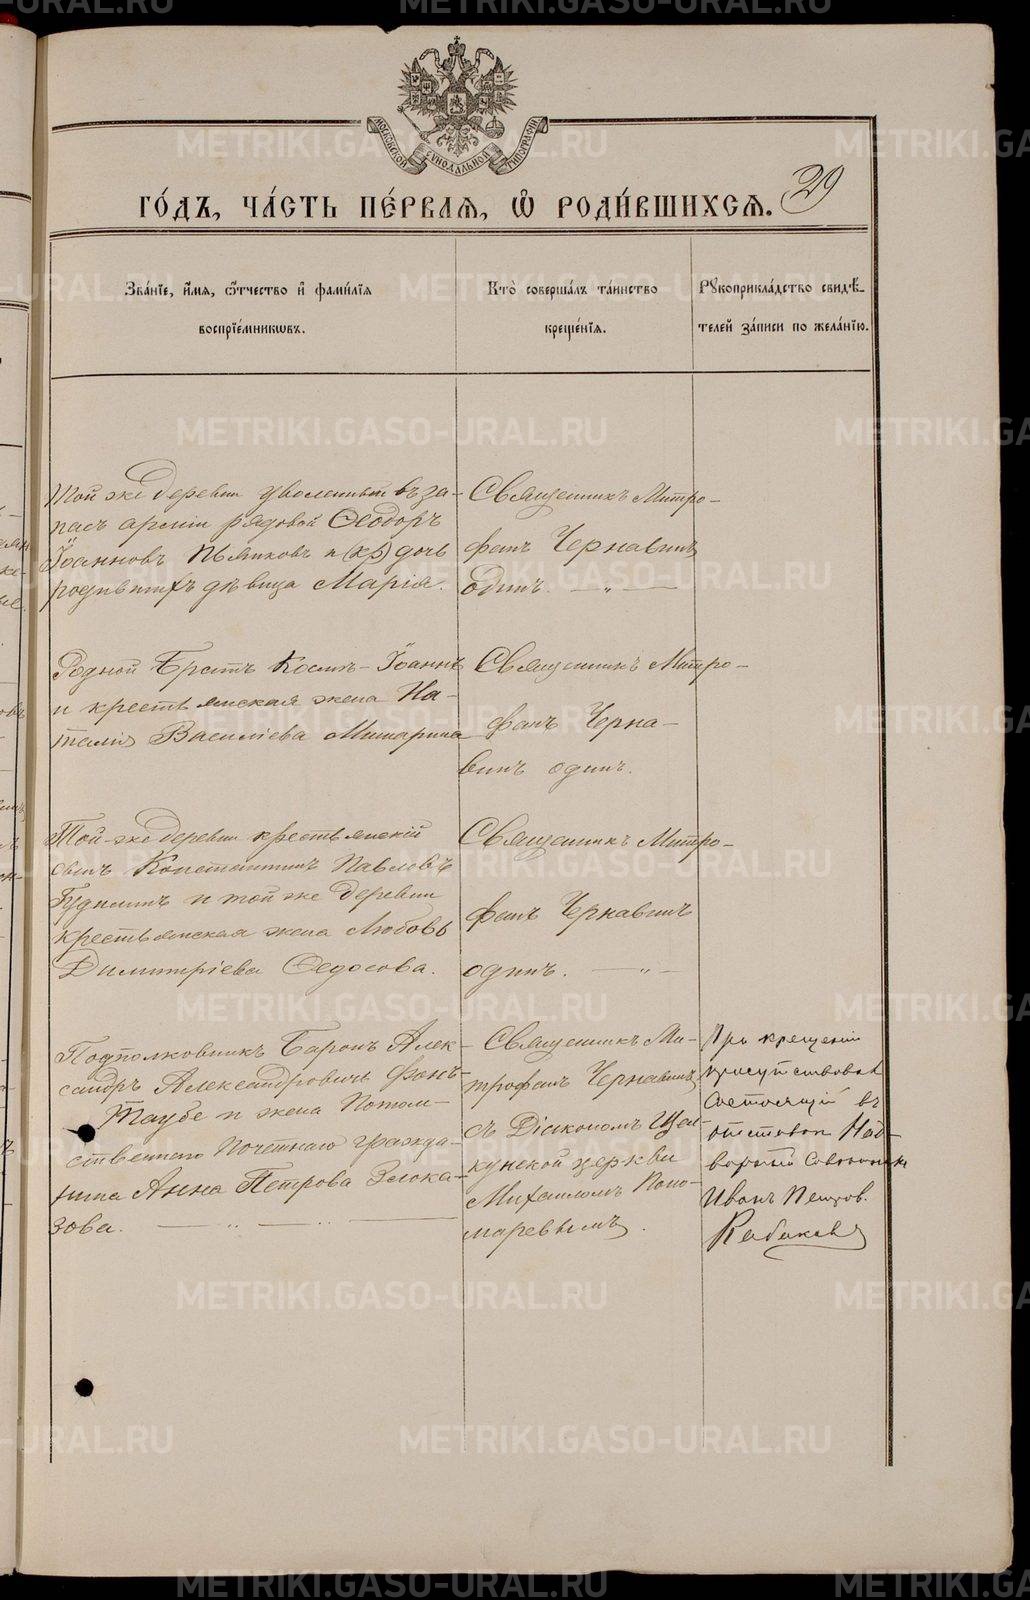 МОСКОВСКОЙ СѴНОДАЛЬНОЙ ТИПОГРАФІИ
29
ГО́ДЪ, ЧА́СТЬ ПЕ́РВАЯ, Ѡ҆ РОДИ́ВШИХСЯ.
Зва́нїе, и҆́мя, ѻ҆́тчество и҆ фами́лїя
воспрїе́мникѡвъ.
Кто̀ соверша́лъ та́инство
креще́нїя.
Рꙋкоприкла́дство свидѣ́-
телей за́писи по жела́нїю.
Той же деревни уволенный въ за-
пасъ арміи рядовой Ѳеодоръ
Іоанновъ Пьянковъ и (кр) дочь
родивших дѣвица Марія.
Священникъ Митро-
фанъ Чернавинъ
одинъ. — „ —
Родной братъ Космы - Іоаннъ
и крестьянская жена На-
талія Василіева Митарина
Священникъ Митро-
фанъ Черна-
винъ один.
Той-же деревни крестьянскій
сынъ Константинъ Павловъ
и той же деревни
крестьянская жена Любовь
Димитріева Ѳедосова.
Священникъ Митро-
фанъ Чернавинъ
одинъ. — „ —
Подполковникъ Баронъ Алек-
сандръ Александровичъ фонъ-
Таубе и жена Потом-
ственнаго Почетнаго гражда-
нина Анна Петрова Злока-
зова. — „ — „ —
Священникъ Ми-
трофанъ Чернавинъ
съ Діакономъ Щел-
кунской церкви
Михаиломъ Поно-
маревымъ.
При крещеніи
присутствовал
состоящій въ
отставкѣ Над-
ворный Совѣтникъ
Иванъ Петров.
Кабаков
METRIKI.GASO-URAL.RU